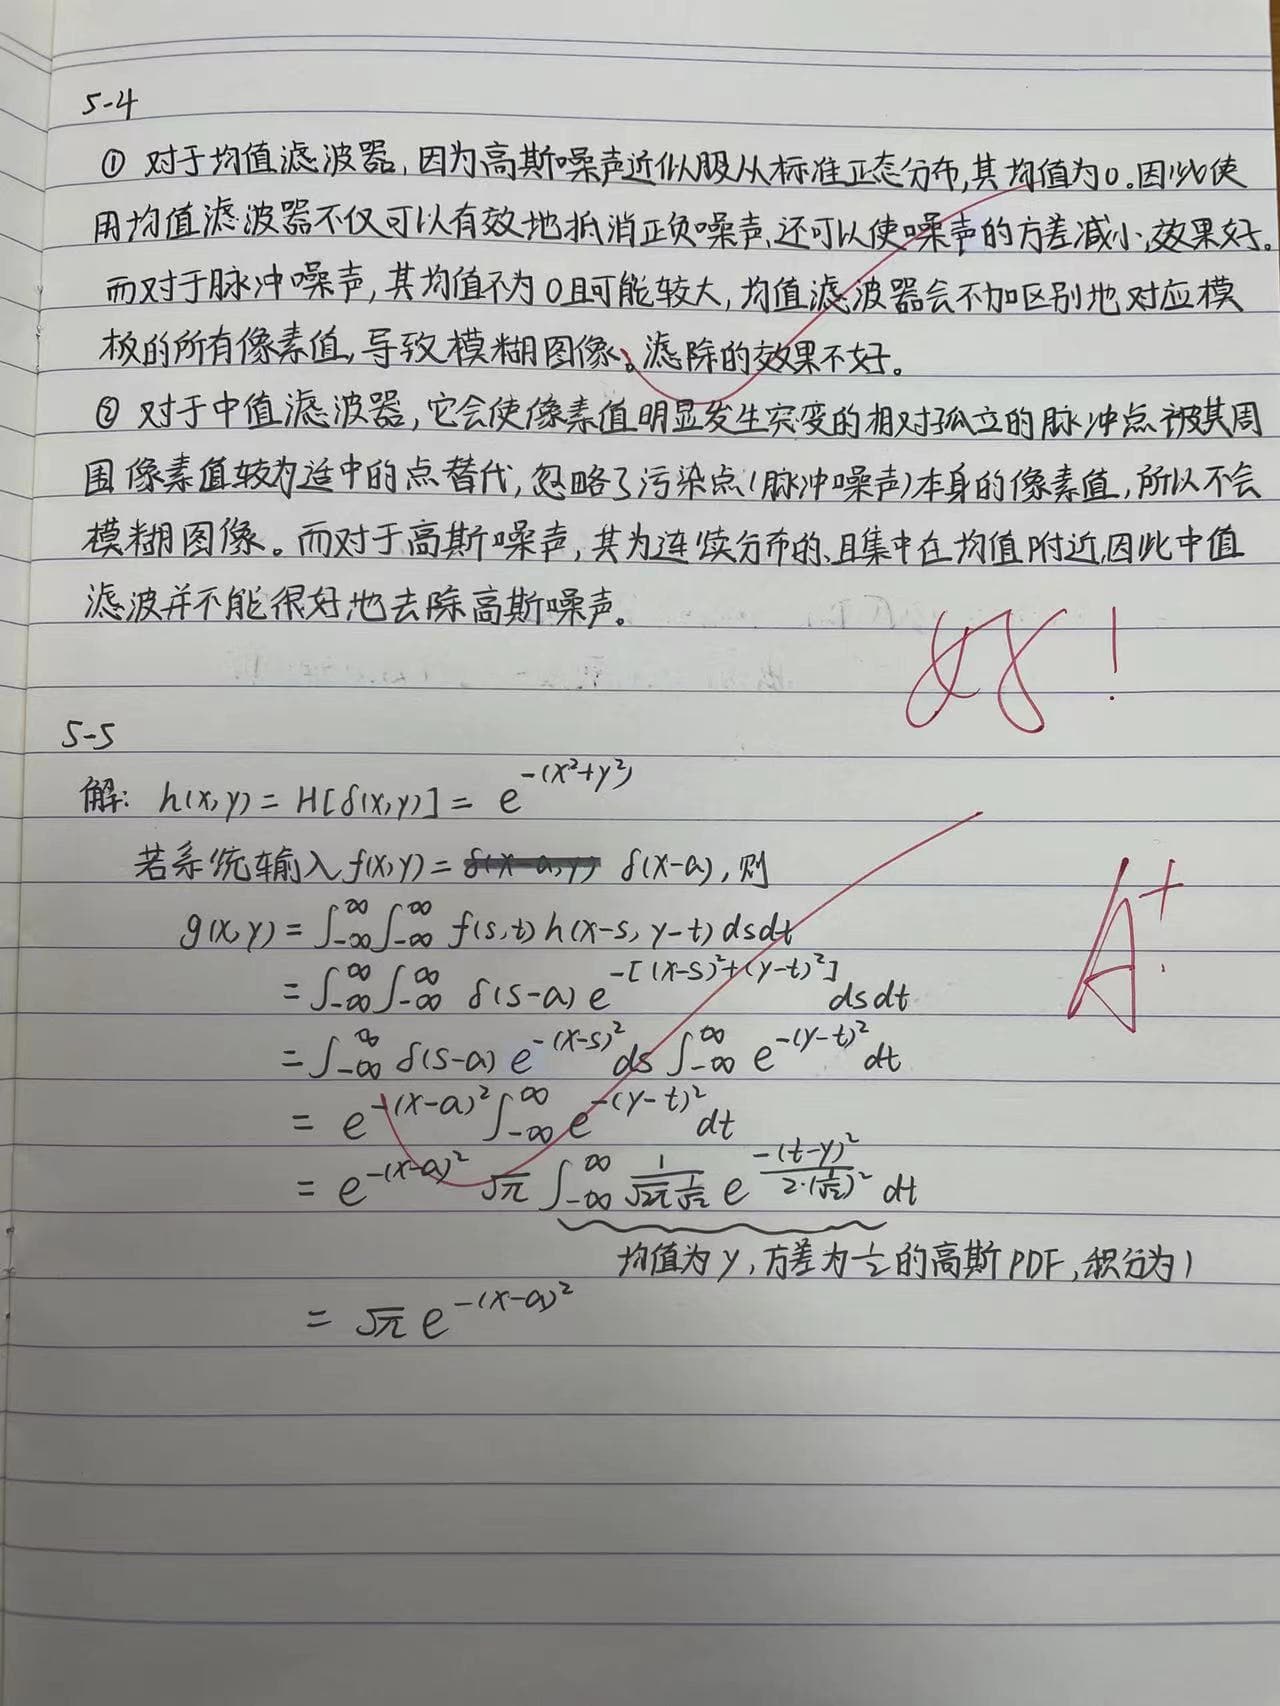 5-4
① 对于均值滤波器,因为高斯噪声近似服从标准正态分布,其均值为0。因此使
用均值滤波器不仅可以有效地抵消正负噪声,还可以使噪声的方差减小,效果好。
而对于脉冲噪声,其均值不为0且可能较大,均值滤波器会不加区别地对应模
板的所有像素值,导致模糊图像。滤除的效果不好。
② 对于中值滤波器,它会使像素值明显发生突变的相对孤立的脉冲点被其周
围像素值较为适中的点替代,忽略了污染点(脉冲噪声)本身的像素值,所以不会
模糊图像。而对于高斯噪声,其为连续分布的,且集中在均值附近,因此中值
滤波并不能很好地去除高斯噪声。
好!
5-5
解: h(x,y) = H[δ(x,y)] = e^{-(x²+y²)}
若系统输入f(x,y) = δ(x-a,y) δ(x-a),则
A⁺
g(x,y) = ∫_{-∞}^{∞}∫_{-∞}^{∞} f(s,t) h(x-s, y-t) dsdt
= ∫_{-∞}^{∞}∫_{-∞}^{∞} δ(s-a) e^{-[(x-s)²+(y-t)²]} dsdt
= ∫_{-∞}^{∞} δ(s-a) e^{-(x-s)²} ds ∫_{-∞}^{∞} e^{-(y-t)²} dt
= e^{-(x-a)²} ∫_{-∞}^{∞} e^{-(y-t)²} dt
= e^{-(x-a)²} √π ∫_{-∞}^{∞} \frac{1}{√2π \frac{1}{√2}} e^{\frac{-(t-y)²}{2·(\frac{1}{√2})²}} dt
均值为y,方差为½的高斯PDF,积分为1
= √π e^{-(x-a)²}